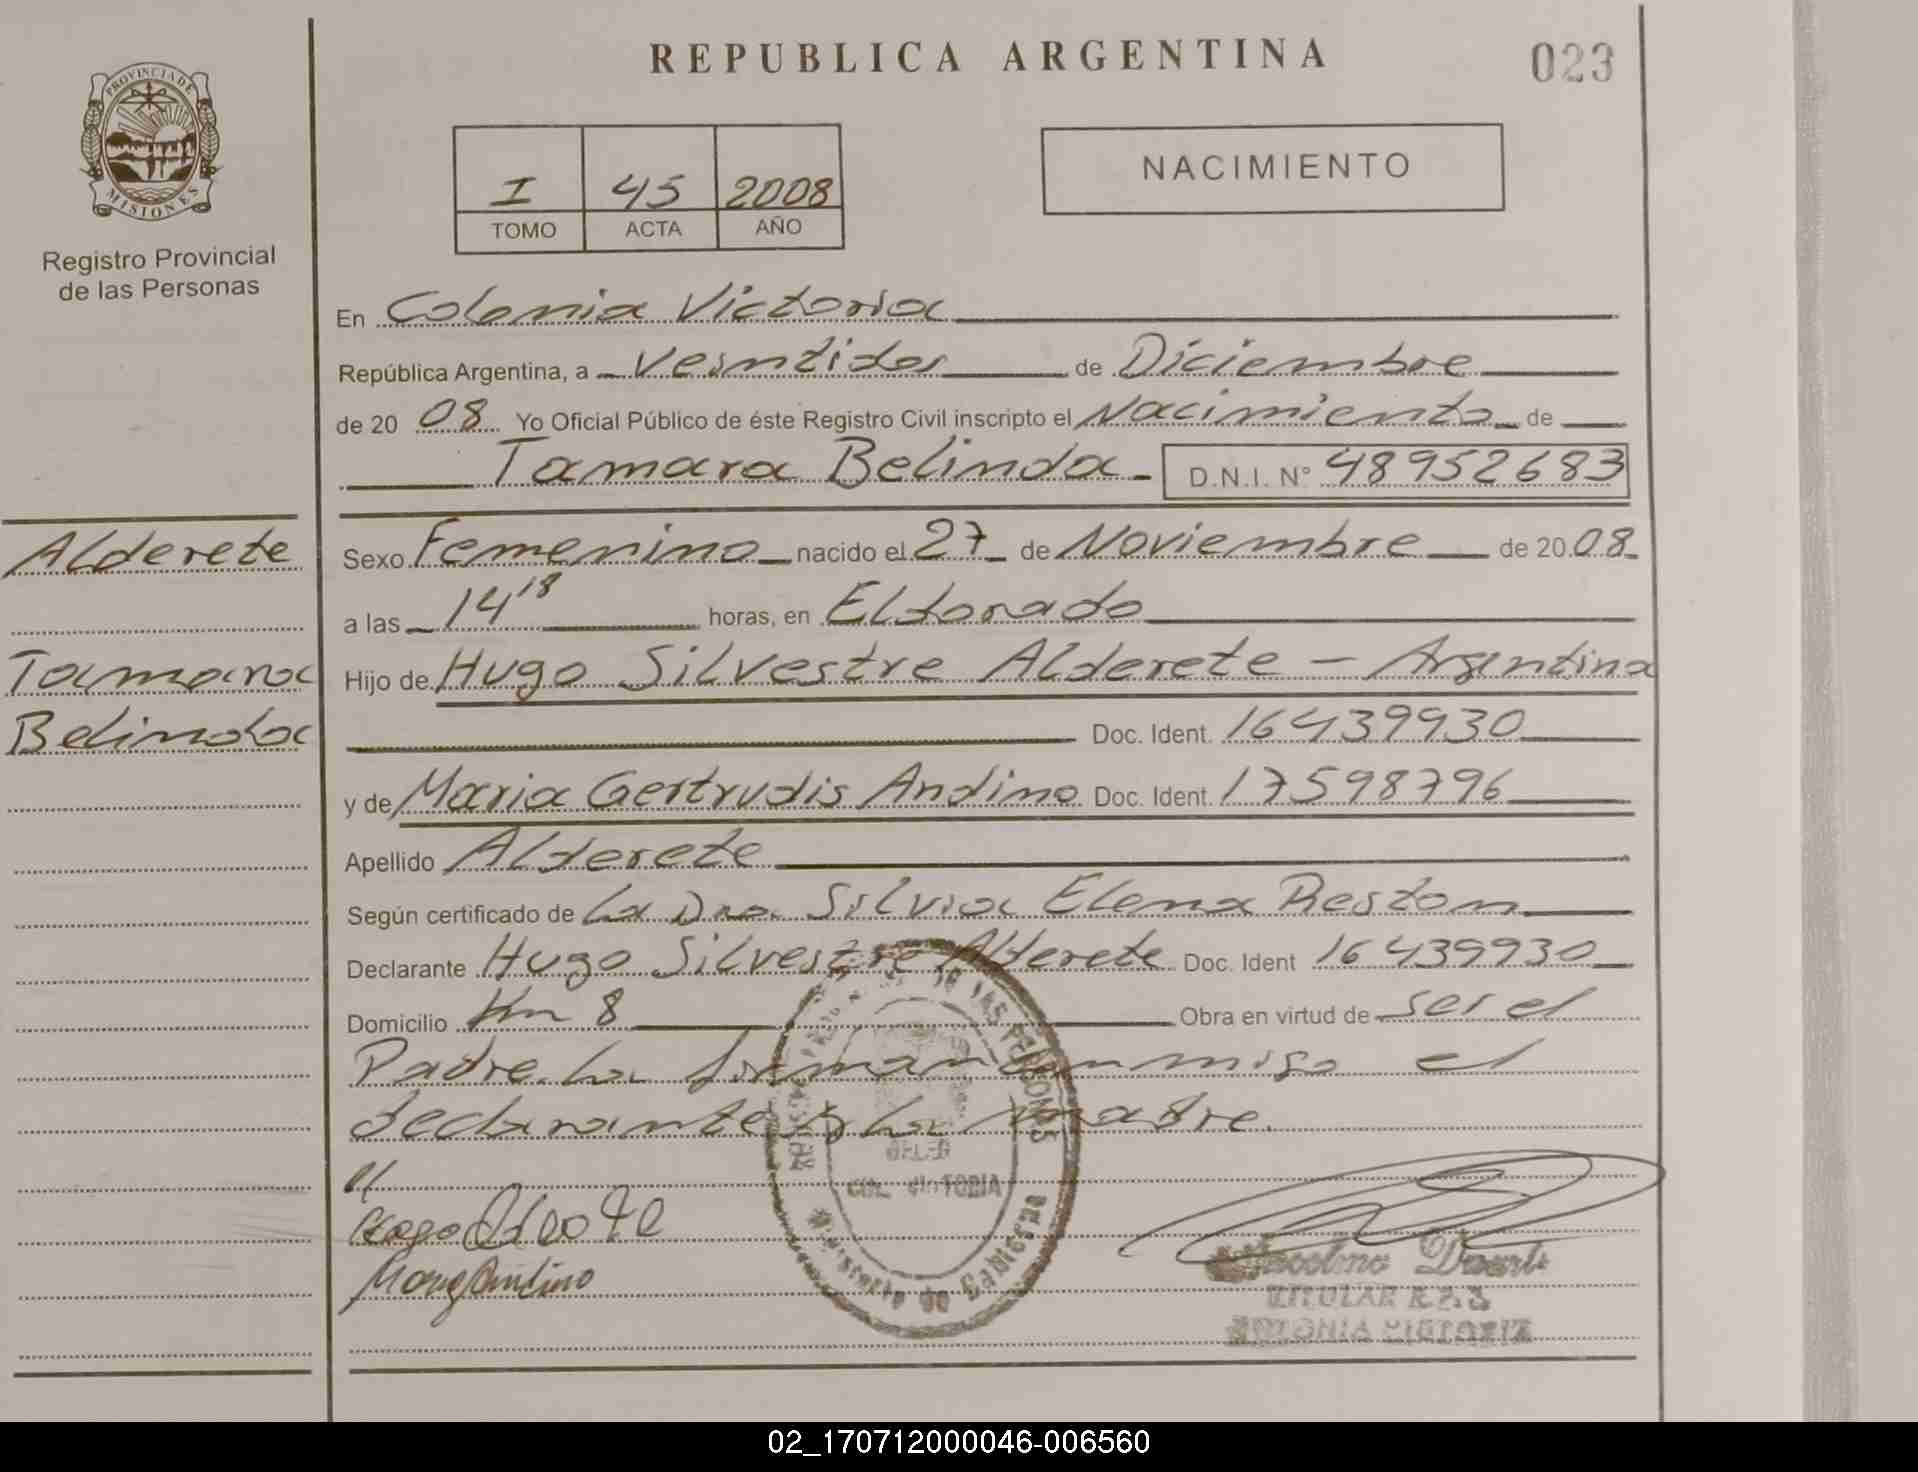 REPUBLICA ARGENTINA
023
PROVINCIA DE
MISIONES
Registro Provincial
de las Personas
I 45 2008
TOMO ACTA AÑO
NACIMIENTO
En Colonia Victoria
República Argentina, a Veintidos de Diciembre
de 20 08 Yo Oficial Público de éste Registro Civil inscripto el Nacimiento de
Tamara Belinda D.N.I. N° 48952683
Alderete
Tamara
Belinda
Sexo Femenino nacido el 27 de Noviembre de 20 08
a las 14 18 horas, en Eldorado
Hijo de Hugo Silvestre Alderete - Argentina
Doc. Ident. 16439930
y de Maria Gertrudis Andino Doc. Ident. 17598796
Apellido Alderete
Según certificado de La Dra. Silvia Elena Reston
Declarante Hugo Silvestre Alderete Doc. Ident 16439930
Domicilio Km 8 Obra en virtud de ser el
Padre. La firman conmigo el
declarante y la madre.
DE LAS PERSONAS
COL. VICTORIA
Ministerio de Gobierno
Andino
TITULAR R.P.S
COLONIA VICTORIA
02_170712000046-006560